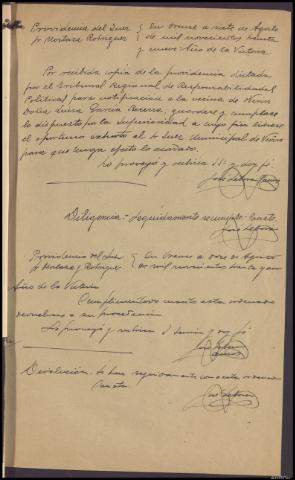 Providencia del Juez } En Orense a siete de Agosto
Sr Hortasa Rodriguez } de mil novecientos treinta
y nueve Año de la Victoria
Por recibida copia de la providencia dictada
por el Tribunal Regional de Responsabilidades
Políticas para notificación a la vecina de
Doña Luisa Garcia Becerra, guardese y cumplase
lo dispuesto por la Superioridad a cuyo fin librese
el oportuno exhorto al Sr Juez Municipal de
para que tenga efecto lo acordado.
Lo proveyó y rubrica SSª y doy fé
Diligencia = Seguidamente se cumple lo Doy fé
Providencia del Juez } En Orense a doce de Agosto
Sr Hortasa y Rodriguez } de mil novecientos treinta y nueve
Año de la Victoria
Cumplimentado cuanto esta ordenado
devuelvase a su procedencia
Lo proveyó y rubrica S Sª y doy fé
Devolución = Se hace seguidamente como esta ordenado